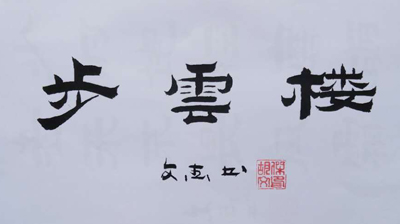 步雲楼
文惠书